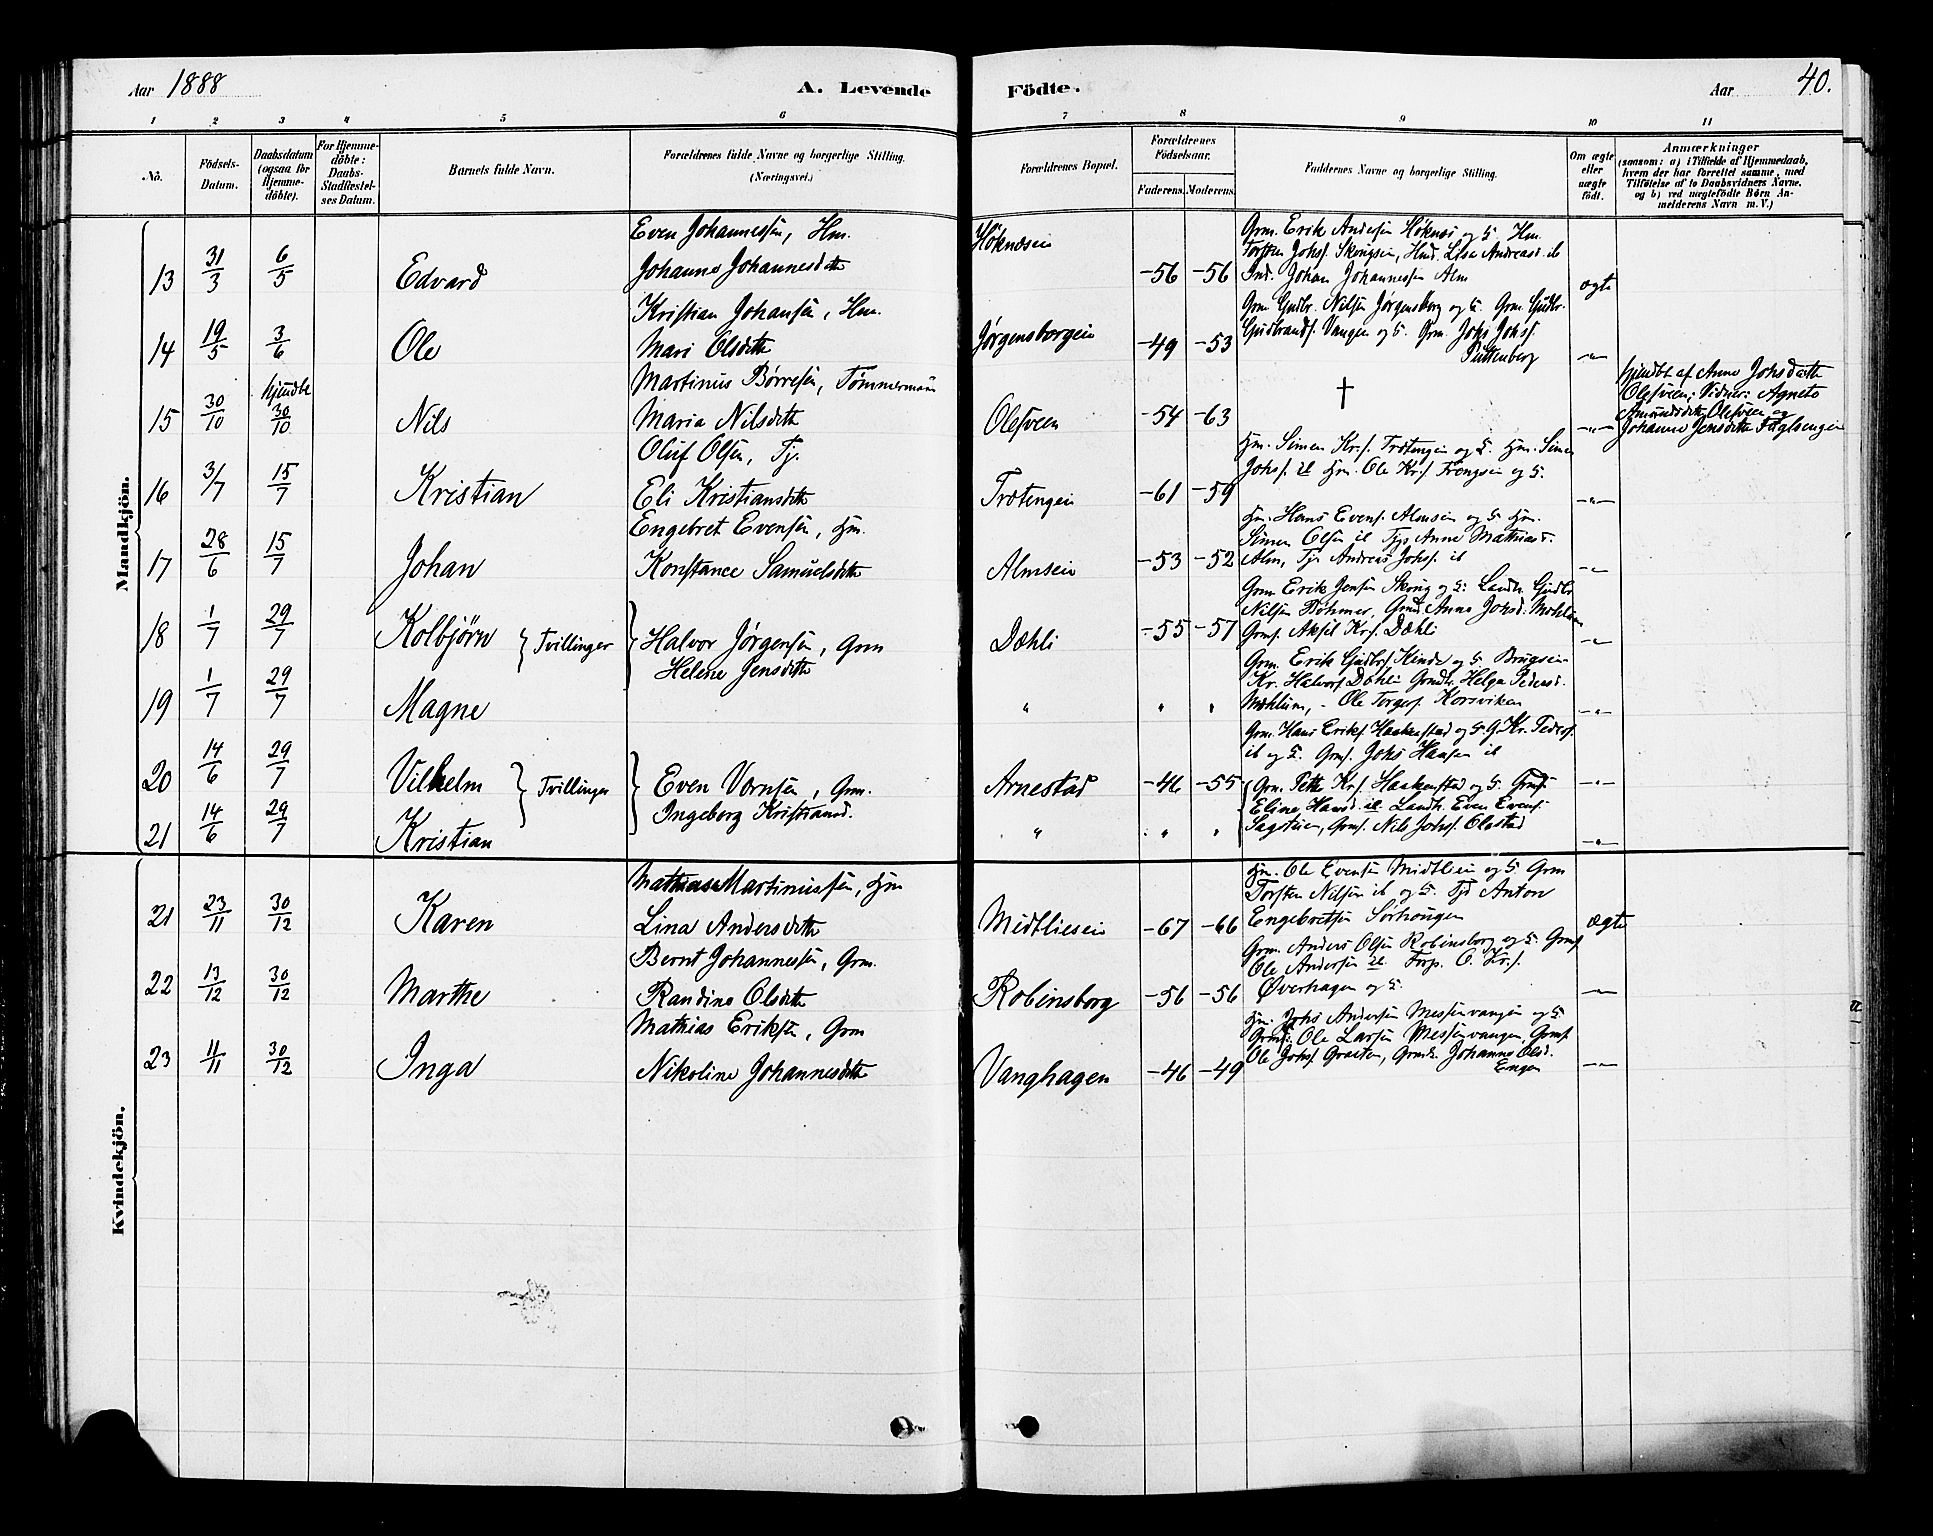 Aar 1888
A. Levende
Födte.
Aar
40.
1 2 3 4 5 6 7 8 9 10 11
No.
Födsels-
Datum.
Daabsdatum
(ogsaa for
Hjemme-
döbte).
For Hjemme-
döbte:
Daabs-
Stadfæstel-
ses Datum.
Barnets fulde Navn.
Forældrenes fulde Navne og borgerlige Stilling.
(Næringsvei.)
Forældrenes Bopæl.
Forældrenes
Födselsaar.
Faderens. Moderens.
Faddernes Navne og borgerlige Stilling.
Om ægte
eller
uægte
födt.
Anmærkninger
(saasom: a) i Tilfælde af Hjemmedaab,
hvem der har forrettet samme, med
Tilföielse af to Daabsvidners Navne,
og b) ved uægtefödte Börn An-
melderens Navn m. V.)
Mandkjön.
Even Johannessen, Hm.
13 31/3 6/5 Edvard Johanne Johannesdtr Høknæseie -56 -56 ægte
Grm. Erik Andersen Høknæs og H. Hm.
Torsten Johs. Skougseie, Hmd. Lisa Andreasd. ib
Ind. Johan Johannessen Alm
Kristian Johansen, Hm.
14 19/5 3/6 Ole Mari Olsdtr Jørgensborgeie -49 -53 -"-
Grm. Gudbr. Nilsen Jørgensborg og H. Grm. Gudbr.
Gudbrands. Vangen og H. Grm. Johs Johs.
Puttenberg
Martinus Børresen, Tømmermand
15 30/10 hjemdbt 30/10 Nils Maria Nilsdtr Olesveen -54 -63 † -"-
hjemdbt af Anne Johsdatter
Olesveen; Vidner: Agnete
Amundsdtr Olesveen og
Johanne Jensdtr Fuglsengen
Oluf Olsen, Tj.
16 3/7 15/7 Kristian Eli Kristiansdtr Trætengeie -61 -59 -"-
Hm. Simen Kr.s. Trætengen og H. Hm. Simen
Johs. ib Hm. Ole Kr.s. Trængseie og H.
Engebret Evensen, Hm.
17 28/6 15/7 Johan Konstance Samuelsdtr Almseie -53 -52 -"-
Hm. Hans Evens. Almseie og H. Hm.
Simen Olsen ib Tjp Anne Mathiasd.
Alm, Tj. Andreas Johs. ib
18 1/7 29/7 Kolbjørn } Tvillinger } Halvor Jørgensen, Grm Dæhli -55 -57 -"-
Helene Jensdtr
Grm. Erik Jensen Skoug og H. Landh. Gudbr.
Nilsen Bøhmer, Grmd. Anna Johsd. Mæhlum
Grms. Aksel Kr.s. Dæhli
19 1/7 29/7 Magne " " " -"-
Grm. Erik Gudbrs. Kinde og H. Brugseier
Kr. Halvors. Dæhli Grmd. Helga Pedersd.
Mæhlum, - Ole Torgers. Korsviken
20 14/6 29/7 Vilhelm } Tvillinger } Even Værnsen, Grm. Arnestad -46 -55 -"-
Ingeborg Kristiansd.
Grm. Hans Eriks. Haakenstad og H. G. Kr. Peders.
ib og H. Grms. Johs Hansen ib
21 14/6 29/7 Kristian " " " -"-
Grm. Pette Kr.s. Haakenstad og H. Grmd
Eline Hansd. ib Landh. Even Evens.
Sagstuen, Grms. Nils Johs. Olestad
Kvindekjön.
Mathias Martinussen, Hm
21 23/11 30/12 Karen Lina Andersdtr Midtlieseie -67 -66 ægte
Hm. Ole Evensen Midtlien og H. Grm
Torsten Nilsen ib og H. Tj. Anton
Engebretsen Sørhougen
Bernt Johannessen, Grm.
22 13/12 30/12 Marthe Randine Olsdtr Robinsborg -56 -56 -"-
Grm. Anders Olsen Robinsborg og H. Grms
Ole Andersen ib Forp. O. Kr.s.
Øverhagen og H.
Mathias Eriksen, Grm
23 11/11 30/12 Inga Nikoline Johannesdtr Vanghagen -46 -49 -"-
Hm. Johs Andersen Messenvangen og H
Grms. Ole Larsen Messenvangen, Grms.
Ole Johs. Graeten, Grmd. Johanne Olsd.
Engen